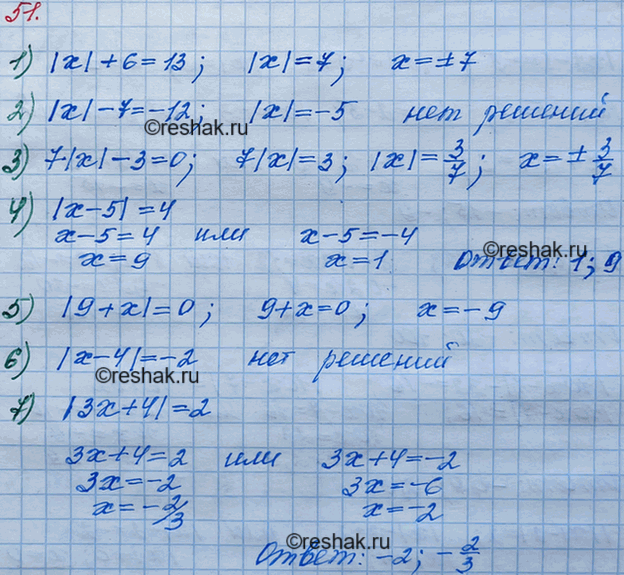 51.
1) |x| + 6 = 13; |x| = 7; x = ±7
2) |x| - 7 = -12; |x| = -5 нет решений
©reshak.ru
3) 7|x| - 3 = 0; 7|x| = 3; |x| = 3/7; x = ± 3/7
4) |x - 5| = 4
x - 5 = 4 или x - 5 = -4
©reshak.ru
x = 9 x = 1 Ответ: 1; 9
5) |9 + x| = 0; 9 + x = 0; x = -9
6) |x - 4| = -2 нет решений
©reshak.ru
7) |3x + 4| = 2
3x + 4 = 2 или 3x + 4 = -2
3x = -2 3x = -6
x = -2/3 x = -2
©reshak.ru
©reshak.ru
Ответ: -2; -2/3